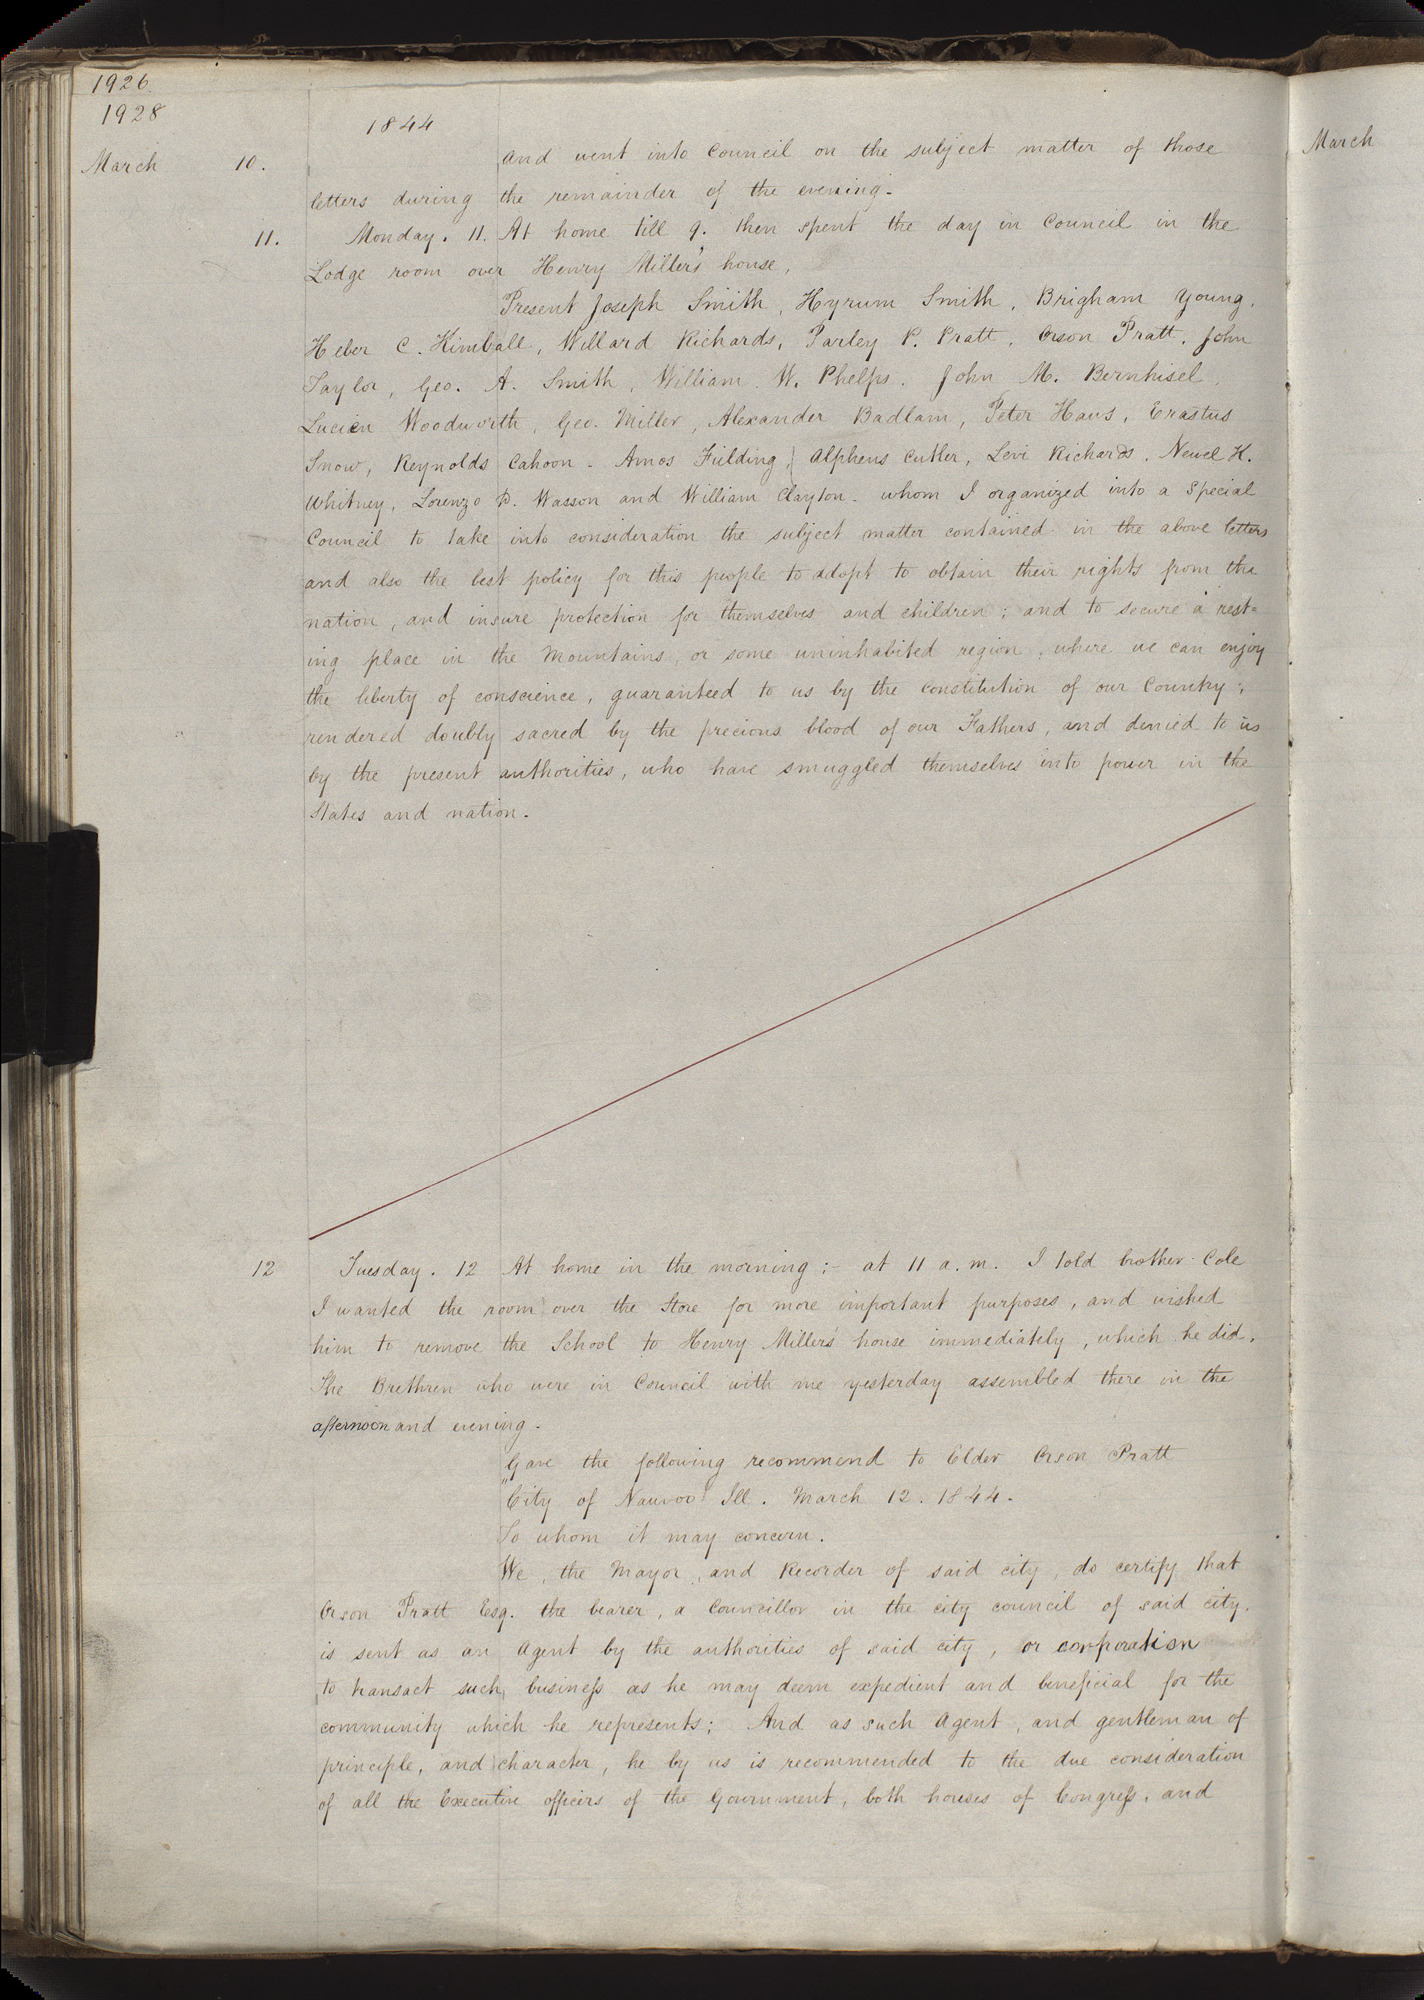 1926
1928
1844
March 10. and went into Council on the subject matter of those
letters during the remainder of the evening.
11. Monday. 11. At home till 9. then spent the day in Council in the
Lodge room over Henry Miller's house,
Present Joseph Smith, Hyrum Smith, Brigham Young,
Heber C. Kimball, Willard Richards, Parley P. Pratt, Orson Pratt, John
Taylor, Geo. A. Smith, William W. Phelps. John M. Bernhisel,
Lucien Woodworth, Geo. Miller, Alexander Badlam, Peter Haws, Erastus
Snow, Reynolds Cahoon. Amos Fielding, Alpheus Cutler, Levi Richards, Newel K.
Whitney, Lorenzo D. Wasson and William Clayton. whom I organized into a Special
Council to take into consideration the subject matter contained in the above letters
and also the best policy for this people to adopt to obtain their rights from the
nation, and insure protection for themselves and children; and to secure a rest=
ing place in the Mountains, or some uninhabited region, where we can enjoy
the liberty of conscience, guaranteed to us by the Constitution of our Country,
rendered doubly sacred by the precious blood of our Fathers, and denied to us
by the present authorities, who have smuggled themselves into power in the
States and nation.
12 Tuesday. 12 At home in the morning;- at 11 a.m. I told brother Cole
I wanted the room over the Store for more important purposes, and wished
him to remove the School to Henry Millers' house immediately, which he did.
The Brethren who were in Council with me yesterday assembled there in the
afternoon and evening.
Gave the following recommend to Elder Orson Pratt
"City of Nauvoo Ill. March 12. 1844.
To whom it may concern.
We, the Mayor, and Recorder of said city, do certify that
Orson Pratt Esq. the bearer, a Councillor in the city council of said city,
is sent as an Agent by the authorities of said city, or corporation
to transact such business as he may deem expedient and beneficial for the
community which he represents; And as such Agent, and gentleman of
principle, and character, he by us is recommended to the due consideration
of all the Executive officers of the Government, both houses of Congress, and
March